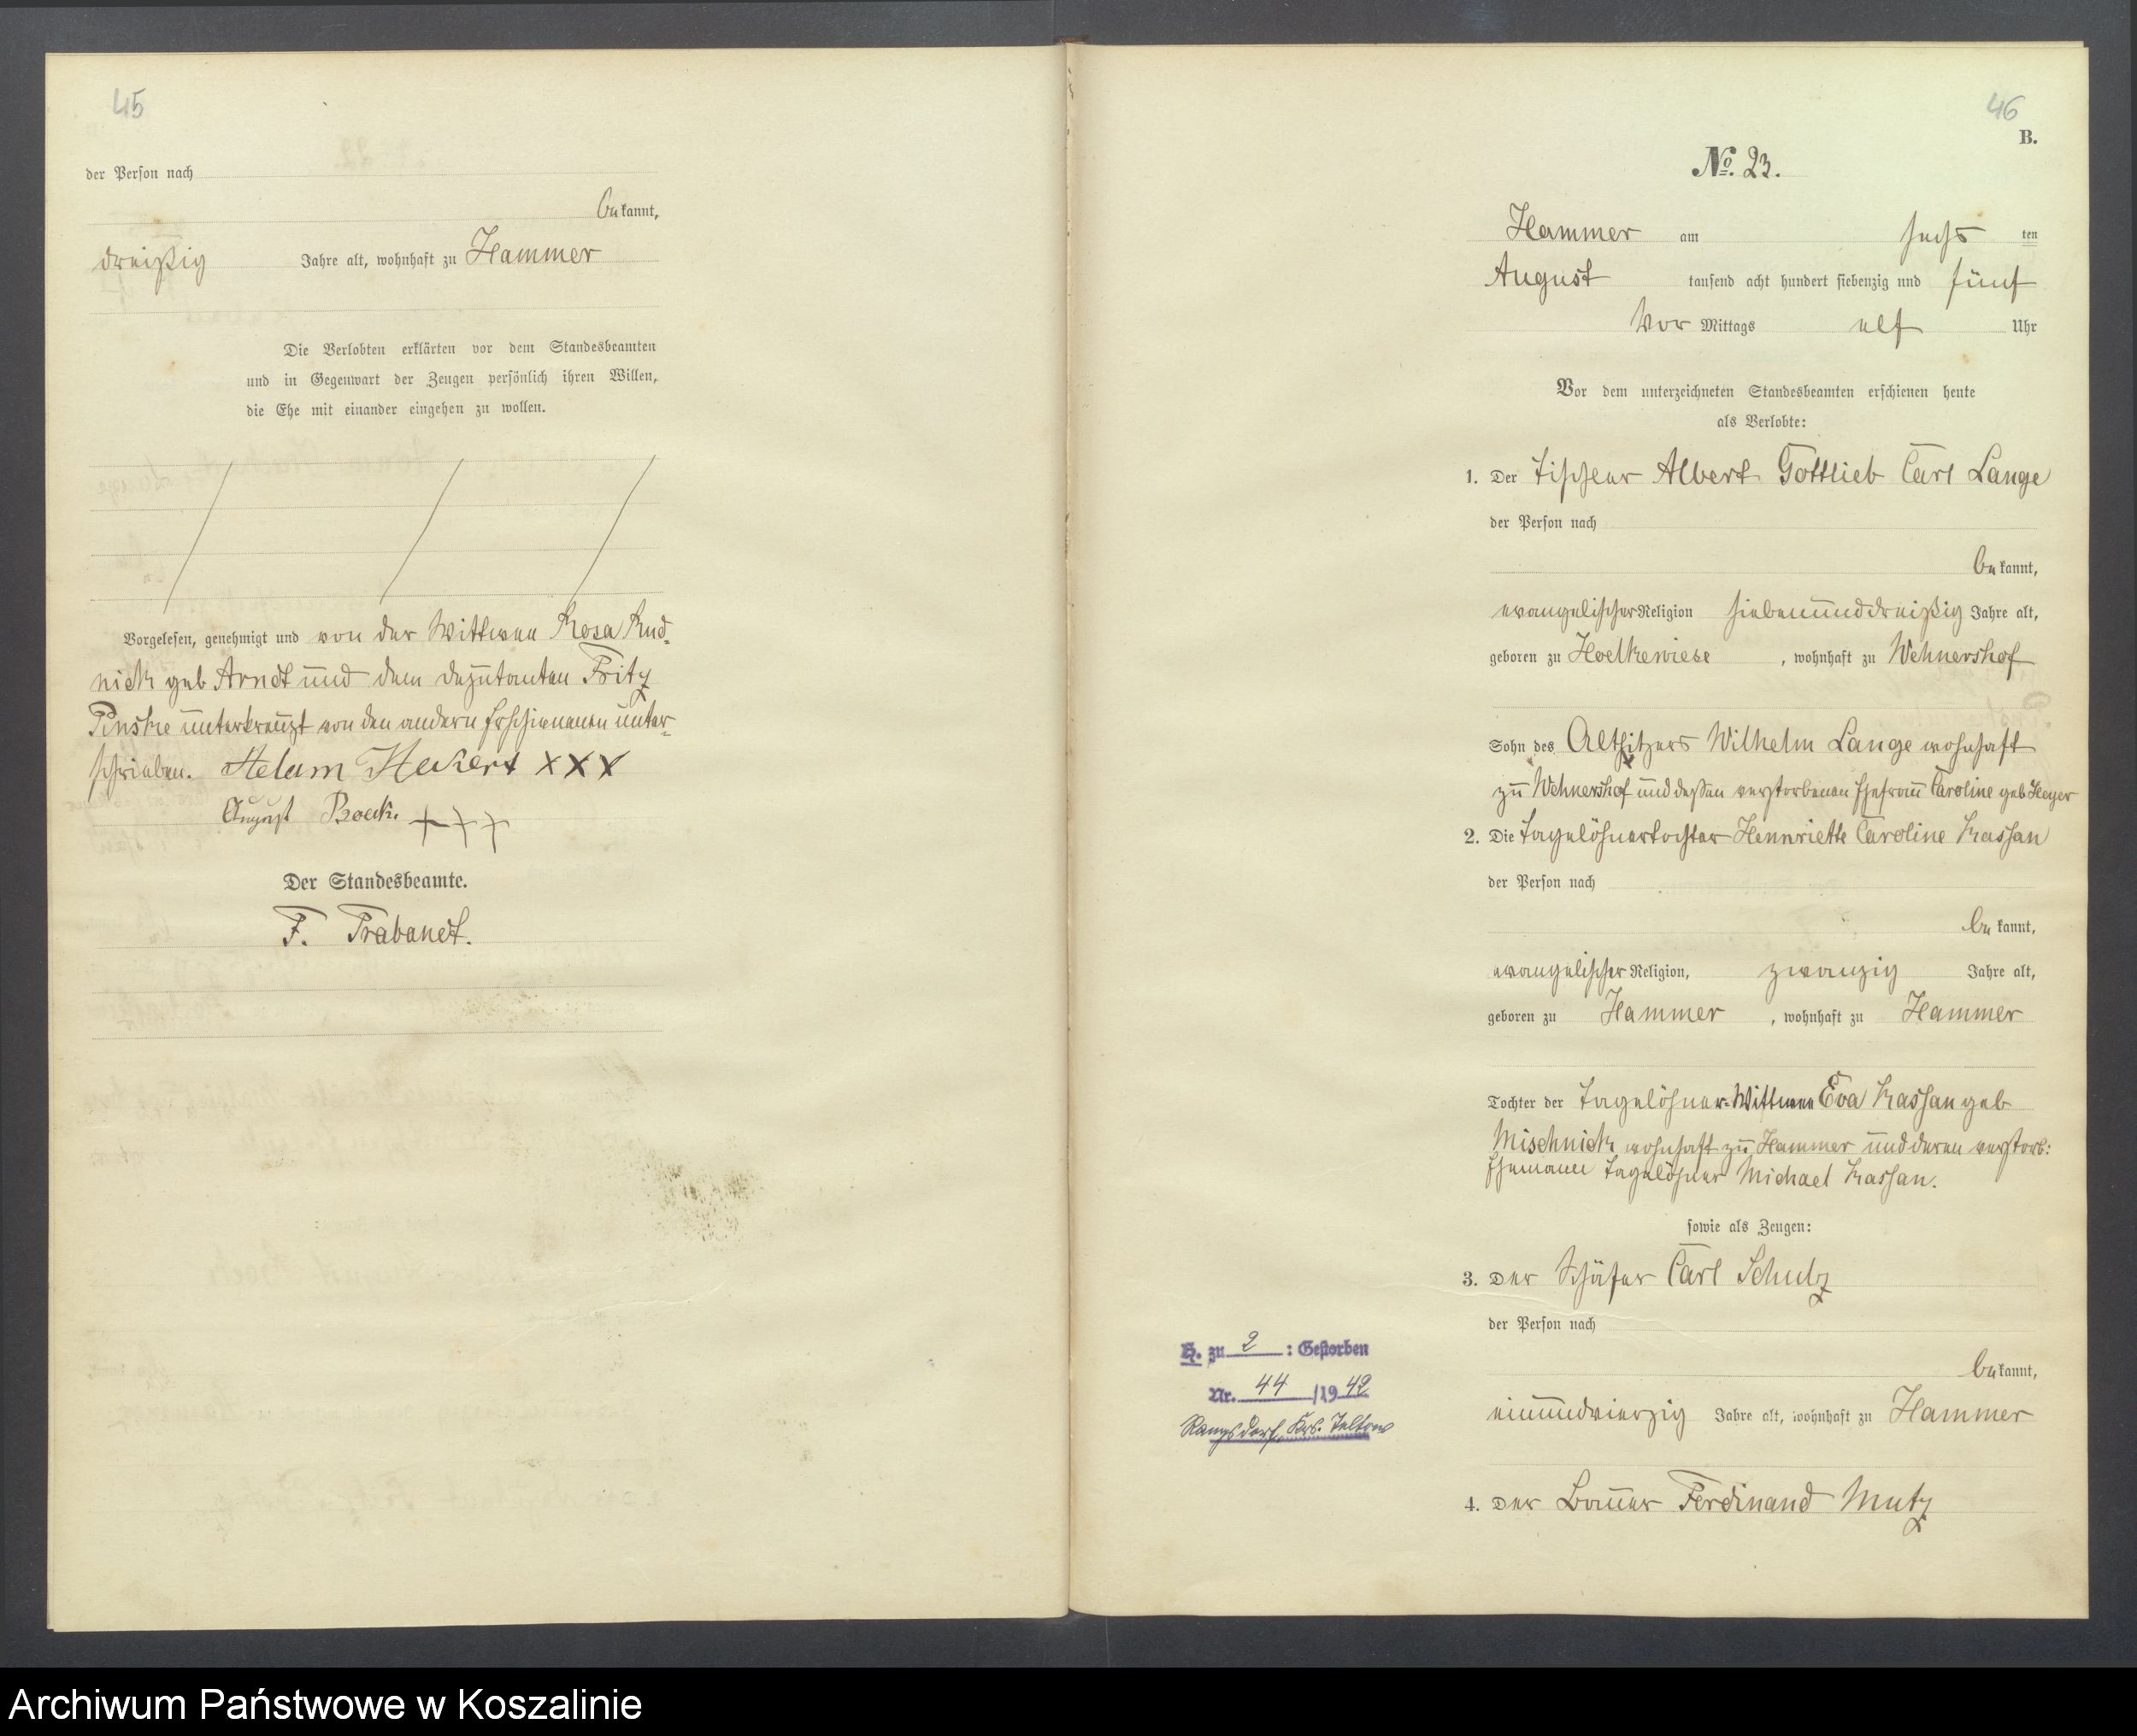 45
der Person nach
bekannt,
dreißig Jahre alt, wohnhaft zu Hammer
Die Verlobten erklärten vor dem Standesbeamten
und in Gegenwart der Zeugen persönlich ihren Willen,
die Ehe mit einander eingehen zu wollen.
Vorgelesen, genehmigt und von der Wittwe Rosa Rud-
nick geb Arndt und dem Deputanten Fritz
unterkreuzt von den andern Erschienenen unter-
schrieben. XXX
August Boeck. +++
Der Standesbeamte.
F. Trabandt.
46
B.
No. 23.
Hammer am sechs ten
August tausend acht hundert siebenzig und fünf
Vor Mittags elf Uhr
Vor dem unterzeichneten Standesbeamten erschienen heute
als Verlobte:
1. Der Tischler Albert Gottlieb Carl Lange
der Person nach
bekannt,
evangelischer Religion siebenunddreißig Jahre alt,
geboren zu Hoelkewiese, wohnhaft zu Wehnershof
Sohn des Altsitzers Wilhelm Lange wohnhaft
zu Wehnershof und dessen verstorbenen Ehefrau Caroline geb Heyer
2. Die Tagelöhnertochter Hennriette Caroline Kassan
der Person nach
bekannt,
evangelischer Religion, zwanzig Jahre alt,
geboren zu Hammer, wohnhaft zu Hammer
Tochter der Tagelöhner-Wittwe Eva Kassan geb
Mischnick wohnhaft zu Hammer und deren verstorb:
Ehemann Tagelöhner Michael Kassan.
sowie als Zeugen:
3. Der Schäfer Carl Schulz
der Person nach
bekannt,
einundvierzig Jahre alt, wohnhaft zu Hammer
4. Der Bauer Ferdinand Mutz
H. zu 2 : Gestorben
Nr. 44 /1942
Rangsdorf, Krs. Teltow
Archiwum Państwowe w Koszalinie